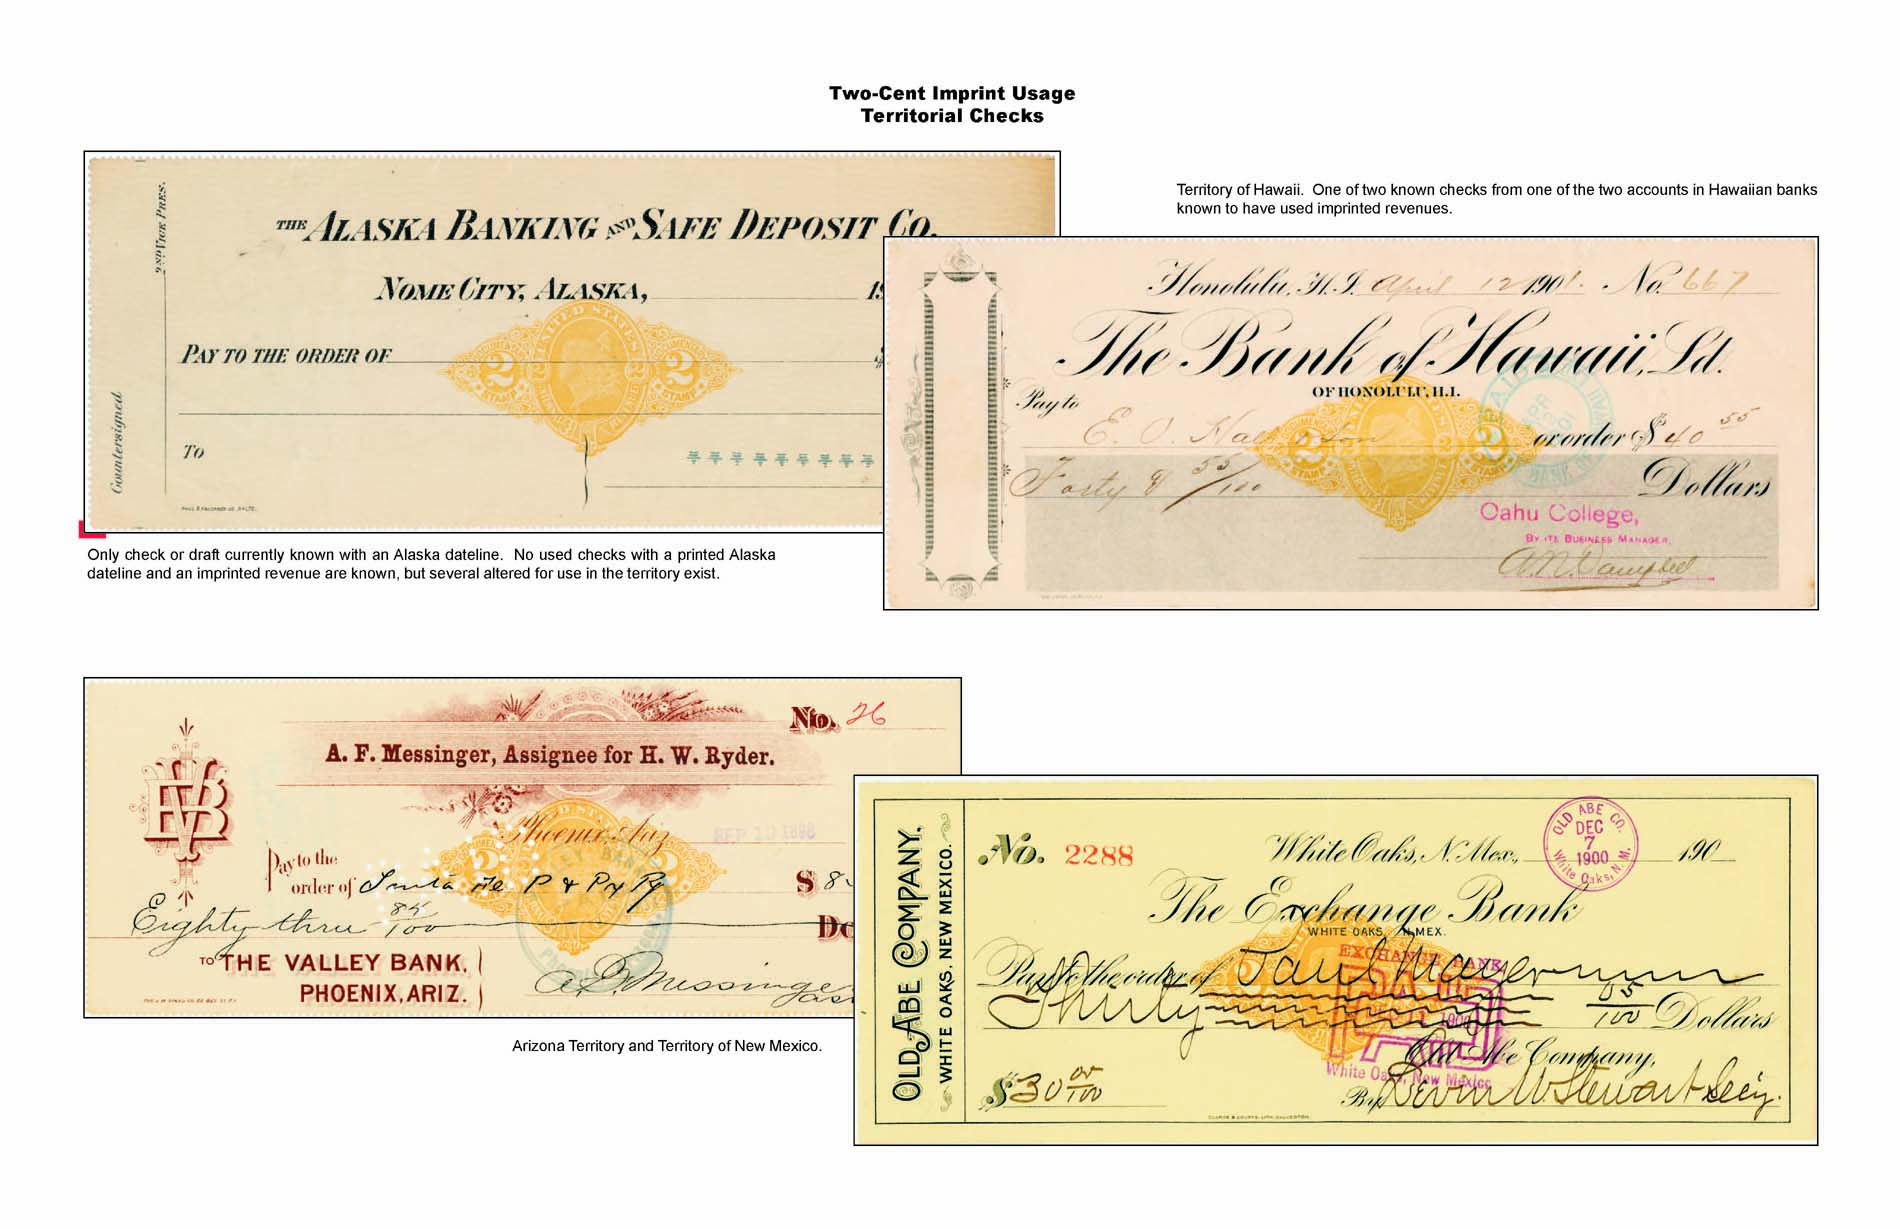 Two-Cent Imprint Usage
Territorial Checks
2ND VICE PRES.
Countersigned
THE ALASKA BANKING AND SAFE DEPOSIT CO.
NOME CITY, ALASKA, 19
PAY TO THE ORDER OF $
UNITED STATES
2 2
STAMP STAMP
To
Only check or draft currently known with an Alaska dateline. No used checks with a printed Alaska
dateline and an imprinted revenue are known, but several altered for use in the territory exist.
Territory of Hawaii. One of two known checks from one of the two accounts in Hawaiian banks
known to have used imprinted revenues.
Honolulu, H.I. April 12 1901. No. 667
The Bank of Hawaii, Ld.
OF HONOLULU, H.I.
Pay to
E. O. Hall & Son or order $ 40 55
Forty & 55/100 Dollars
Oahu College,
BY ITS BUSINESS MANAGER.
No. 26
A. F. Messinger, Assignee for H. W. Ryder.
VB
Phoenix, Ariz SEP 10 1898
Pay to the
order of Santa Fe P & P Ry $ 8
Eighty three 85/100 Do
TO THE VALLEY BANK,
PHOENIX, ARIZ.
OLD ABE COMPANY.
WHITE OAKS, NEW MEXICO.
No. 2288 White Oaks, N. Mex., 190
OLD ABE CO.
DEC
7
1900
White Oaks, N.M.
The Exchange Bank
WHITE OAKS, N. MEX.
Pay to the order of Paul Mayer
EXCHANGE BANK
PAID
1900
White Oaks, New Mexico
Thirty 05/100 Dollars
Old Abe Company,
$30 05/100 By Levin W Stewart Secy.
Arizona Territory and Territory of New Mexico.